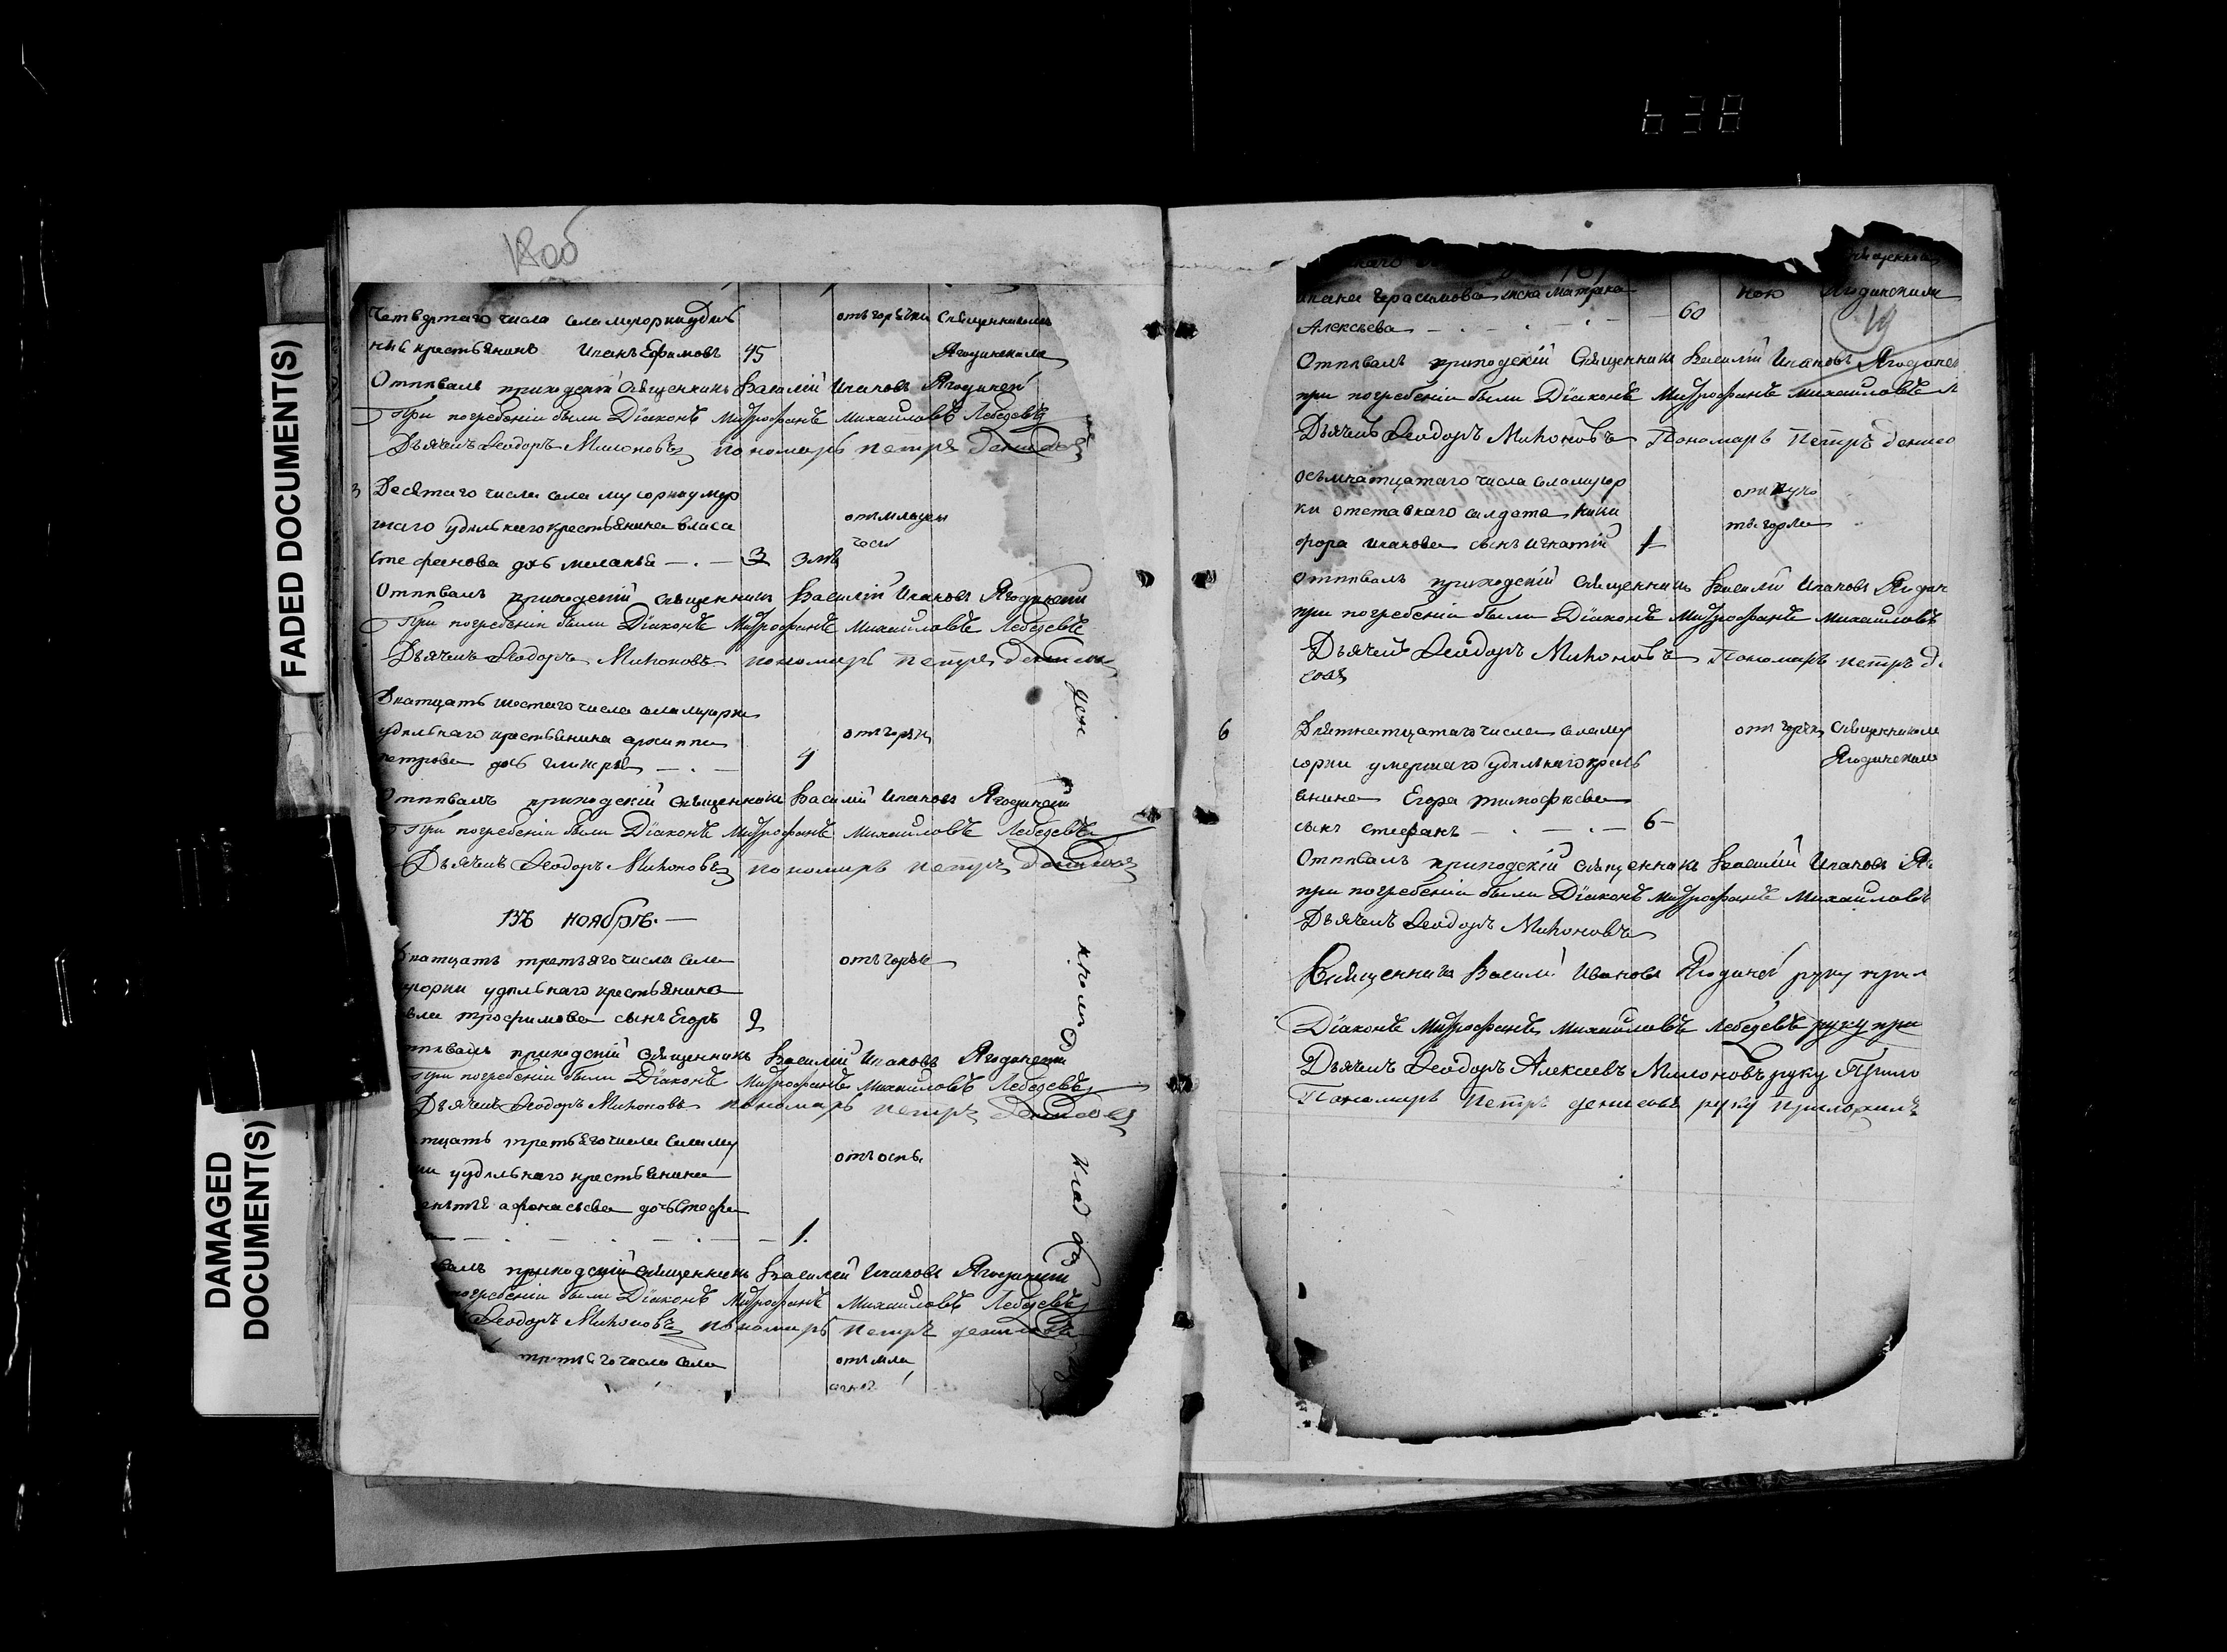 638
FADED DOCUMENT(S)
DAMAGED
DOCUMENT(S)
18об
Четвертаго числа села мугорки удѣль
ный крестьянинъ Иванъ Ефимовъ 45
отъ горячки
Священникомъ
Ягодинскимъ
Отпѣвалъ приходскій Священникъ Василій Ивановъ Ягодинскій
При погребеніи были Діаконъ Митрофанъ Михайловъ Лебедевъ
Дьячекъ Ѳеодоръ Милоновъ пономарь петръ денисовъ
3 Десятаго числа села мугорки умер
шаго удѣльнаго крестьянина власа
стефанова дочь меланья 3
отъ младен
Отпѣвалъ приходскій священникъ Василій Ивановъ Ягодинскій
При погребеніи были Діаконъ Митрофанъ Михайловъ Лебедевъ
Дьячекъ Ѳеодоръ Милоновъ пономарь петръ денисовъ
Дватцать шестаго числа села мугорки
удѣльнаго крестьянина архиппа
петрова дочь гликерья 4
отъ горячки
Отпѣвалъ приходскій священникъ Василій Ивановъ Ягодинскій
При погребеніи были Діаконъ Митрофанъ Михайловъ Лебедевъ
Дьячекъ Ѳеодоръ Милоновъ пономарь петръ денисовъ
Въ ноябрѣ.
дватцать третьяго числа села
удѣльнаго крестьянина
трофимова сынъ Егоръ 2
отъ горячки
приходскій священникъ Василій Ивановъ Ягодинскій
При погребеніи были Діаконъ Митрофанъ Михайловъ Лебедевъ
Дьячекъ Ѳеодоръ Милоновъ пономарь петръ денисовъ
третьяго числа села му
удѣльнаго крестьянина
афонасьева дочь стефа
1.
отъ оспы
приходскій священникъ Василій Ивановъ Ягодинскій
погребеніи были Діаконъ Митрофанъ Михайловъ Лебедевъ
Ѳеодоръ Милоновъ пономарь петръ денисовъ
третьяго числа села
отъ мла
19
Ивана Герасимова жена матрена
Алексѣева 60
Ягодинскимъ
Отпѣвалъ приходскій Священникъ Василій Ивановъ Ягодинс
при погребеніи были Діаконъ Митрофанъ Михайловъ Л
Дьячекъ Ѳеодоръ Милоновъ Пономарь Петръ денисо
осьмнатцатаго числа села мугор
ки отставнаго салдата ники
фора иванова сынъ игнатій 1
Отпѣвалъ приходскій Священникъ Василій Ивановъ Ягодин
при погребеніи были Діаконъ Митрофанъ Михайловъ
Дьячекъ Ѳеодоръ Милоновъ Пономарь петръ де
совъ
6 Девятнатцатаго числа села му
горки умершаго удѣльнаго кресть
янина Егора тимофѣева
сынъ стефанъ 6
отъ горячки
Священникомъ
Ягодинскимъ
Отпѣвалъ приходскій священникъ Василій Ивановъ Яг
при погребеніи были Діаконъ Митрофанъ Михайловъ
Дьячекъ Ѳеодоръ Милоновъ
Священникъ Василій Ивановъ Ягодинской руку прил
Діаконъ Митрофанъ Михайловъ Лебедевъ руку при
Дьячекъ Ѳеодоръ Алексѣевъ Милоновъ руку Прило
Пономарь Петръ денисовъ руку приложилъ